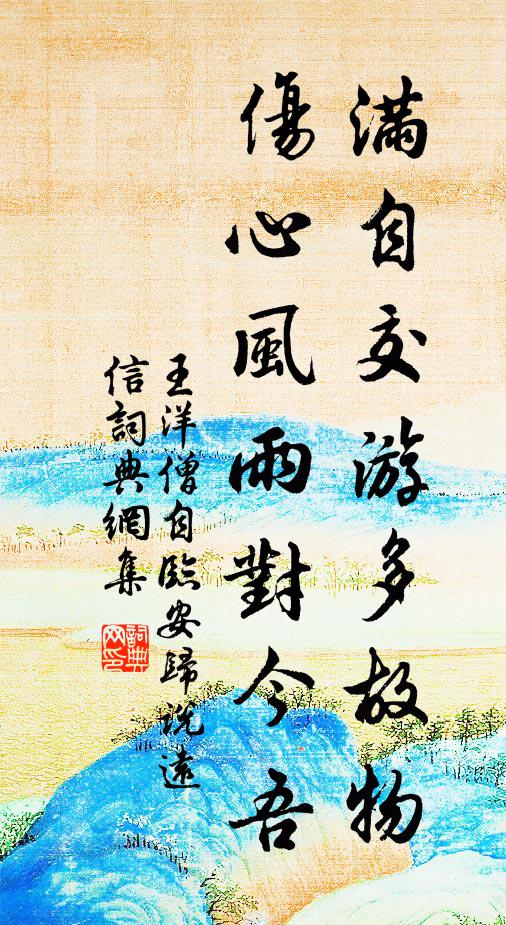 滿自交游多故物
傷心風雨對今吾
王洋僧自臨安歸說遠
信詞典網集
詞典
网印